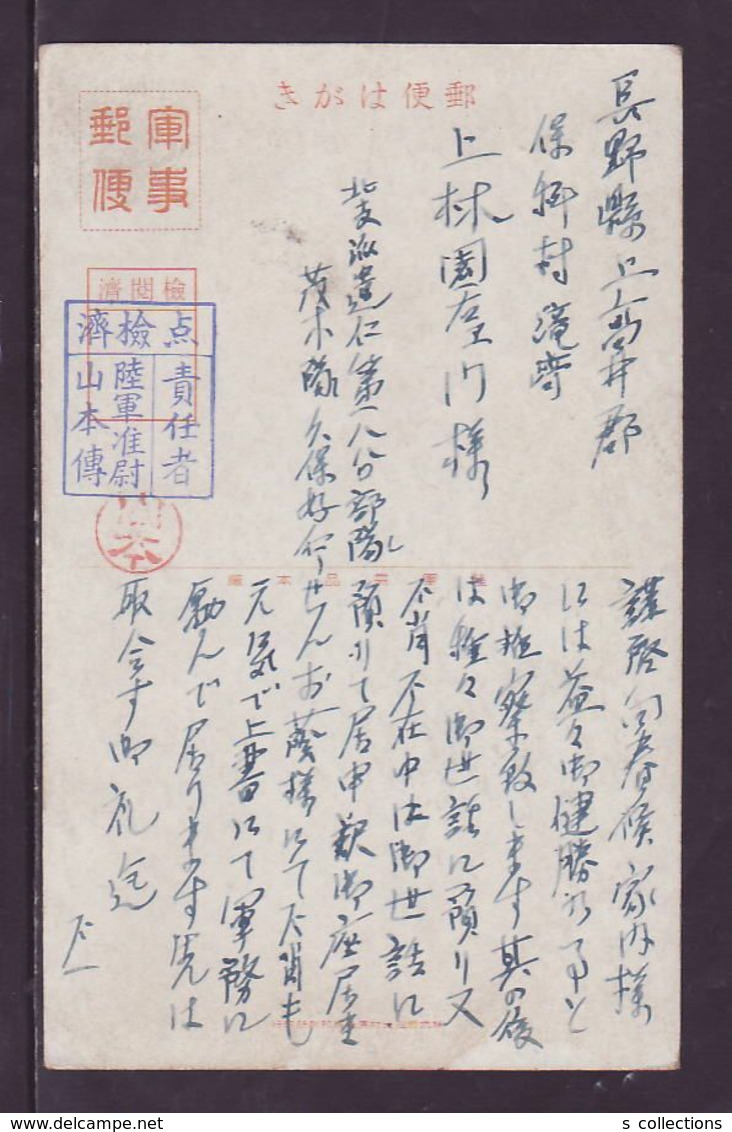 郵便はがき
軍事
郵便
檢閲濟
点檢濟
責任者
陸軍准尉
山本傳
山本
長野縣上高井郡
保科村
上林園右エ門様
北支派遣仁第一八八〇部隊
茂木隊 久保好
謹啓 向春候家内様
には益々御健勝の事と
御推察致します其の後
は種々御世話に預り又
不肖不在中は御世話に
預りて居申
せんお蔭様にて
元気で上番にて軍務に
励んで居ります先は
取合す御礼迄
s collections